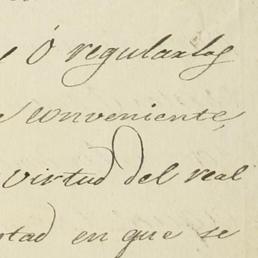 e ó regularlos
e conveniente,
virtud del real
tad en que se